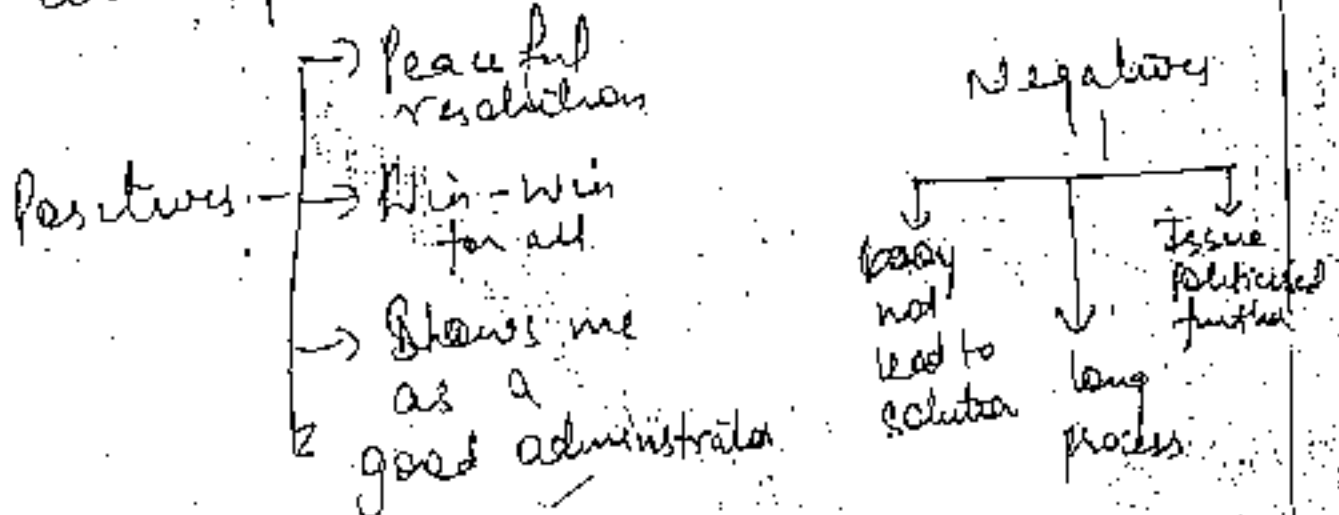 Positives
Peaceful
resolution
Win-win
for all
Shows me
as a
good administrator
Negatives
may
not
lead to
solution
long
process
Issue
politicised
further